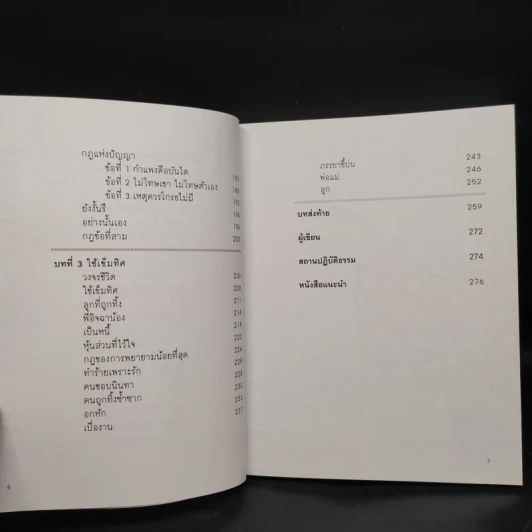 กฎแห่งปัญญา
ข้อที่ 1 กำแพงคือบันได 185
ข้อที่ 2 ไม่โทษเขา ไม่โทษตัวเอง 188
ข้อที่ 3 เหตุควรโกรธไม่มี 192
ยังงั้นรึ 194
อย่างนั้นเอง 198
กฎข้อที่สาม 202
บทที่ 3 ใช้เข็มทิศ
วงจรชีวิต 206
ใช้เข็มทิศ 209
ลูกที่ถูกทิ้ง 211
พี่อิจฉาน้อง 214
เป็นหนี้ 218
หุ้นส่วนที่ไว้ใจ 220
กฎของการพยายามน้อยที่สุด 224
ทำร้ายเพราะรัก 226
คนชอบนินทา 229
คนถูกทิ้งซ้ำซาก 233
อกหัก 237
เบื่องาน
6
ภรรยาขี้บ่น 243
พ่อแม่ 246
ลูก 252
บทส่งท้าย 259
ผู้เขียน 272
สถานปฏิบัติธรรม 274
หนังสือแนะนำ 276
7